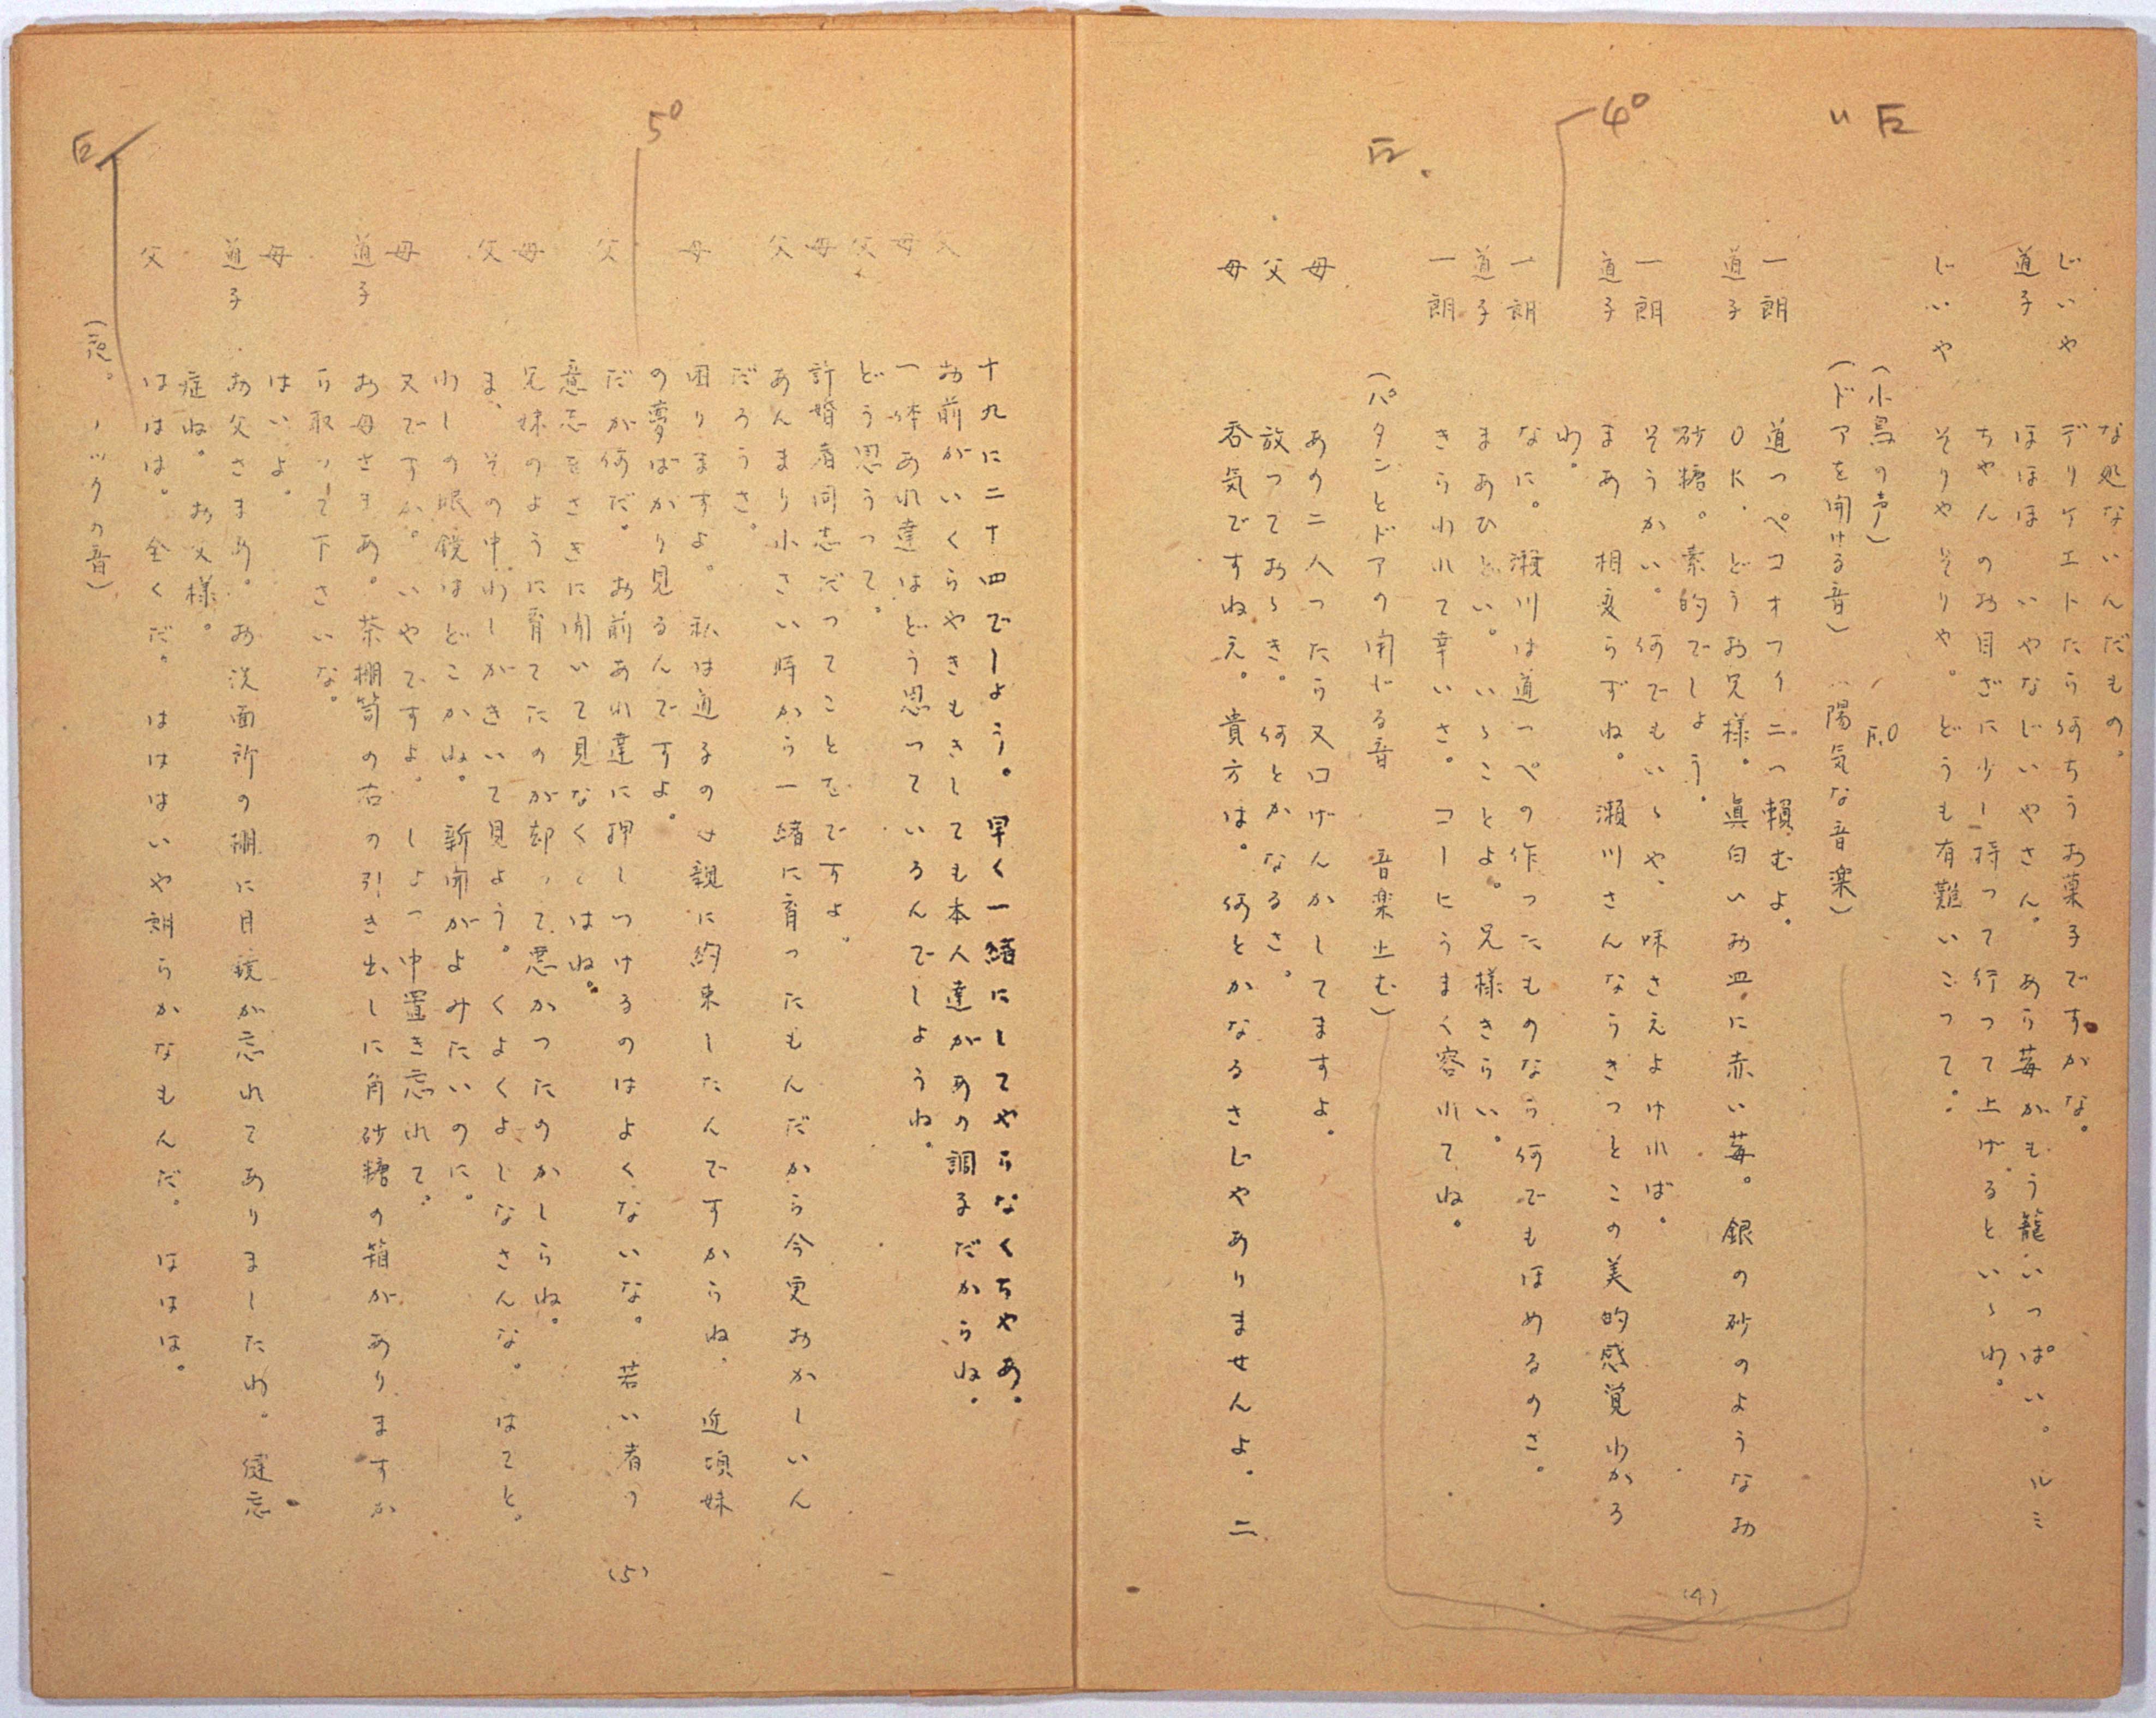 な処ないんだもの。
じいや　デリケエトたら何ちうお菓子ですかな。
道子　ほほほ　いやなじいやさん。あら苺がもう籠いっぱい。ルミ
ちゃんのお目ざに少し持って行って上げるといゝわ。
じいや　そりやそりや。どうも有難いこって。
（小鳥の声）　F.O
（ドアを開ける音）（陽気な音楽）
一朗　道っペコオフイ二つ頼むよ。
道子　OK．どうお兄様。眞白いお皿に赤い苺。銀の砂のようなお
砂糖。素的でしよう。
一朗　そうかい。何でもいゝや、味さえよければ。
道子　まあ　相変らずね。瀬川さんならきっとこの美的感覚わかる
わ。
一朗　なに。瀬川は道っペの作ったものなら何でもほめるのさ。
道子　まあひどい。いゝことよ。兄様きらい。
一朗　きらわれて幸いさ。コーヒうまく容れてね。
（パタンとドアの閉じる音　音楽止む）
母　あの二人ったら又口げんかしてますよ。
父　放っておゝき。何とかなるさ。
母　呑気ですねえ。貴方は。何とかなるさじやありませんよ。二
40
(4)
十九に二十四でしよう。早く一緒にしてやらなくちやあ。
父　お前がいくらやきもきしても本人達があの調子だからね。
母　一体あれ達はどう思っているんでしようね。
父　どう思うって。
母　許婚者同志だってことをですよ。
父　あんまり小さい時から一緒に育ったもんだから今更おかしいん
だろうさ。
母　困りますよ。私は道子の母親に約束したんですからね、近頃妹
の夢ばかり見るんですよ。
父　だが何だ。お前あれ達に押しつけるのはよくないな。若い者の
意志をさきに聞いて見なくてはね。
母　兄妹のように育てたのが却って悪かったのかしらね。
父　ま、その中わしがきいて見よう。くよくよしなさんな。はてと。
わしの眼鏡はどこかね。新聞がよみたいのに。
母　又ですか。いやですよ。しょっ中置き忘れて。
道子　お母さまあ。茶棚笥の右の引き出しに角砂糖の箱がありますか
ら取って下さいな。
母　はいよ。
道子　お父さまあ。お洗面所の棚に目鏡が忘れてありましたわ。健忘
症ね。お父様。
父　ははは。全くだ。はははいや朗らかなもんだ。ははは。
ノックの音）
50
(5)